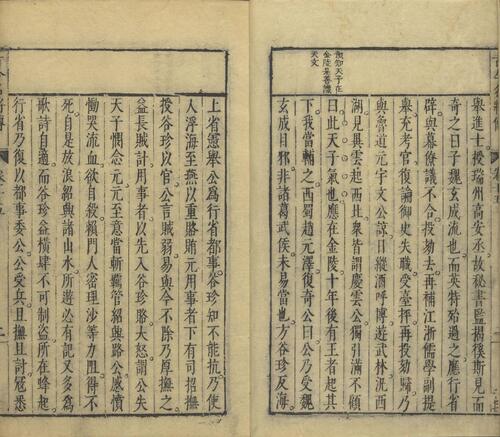 預知天子在
金陵是善識
天文
舉進士授瑞州高安丞故祕書監揭徯斯見而
奇之曰子魏玄成流也而英特殆過之廳行省
辟與幕僚議不合投劾去再補江浙儒學副提
舉充考官復論御史失職受臺抨再投劾歸乃
與魯道元宇文公諒日縱酒呼博遊武林洸西
湖見異雲起西北衆皆謂慶雲公獨引滿不顧
曰此天子氣也應在金陵十年後有王者起其
下我當輔之西蜀趙元澤復奇公曰公乃受魏
玄成目邪非諸葛武侯未易當也方谷珍反海
上省憲舉公爲行省都事谷珍知不能抗乃使
人浮海至燕以重賂賄元用事者下有司招撫
授谷珍以官公言賊弱易與今不除乃厚撫之
益長賊計用事者以先入谷珍賂大怒謂公失
天子憫念元元至意當斬羈管紹興路公感憤
慟哭流血欲自殺賴門人密理沙等力阻得不
死自是放浪紹興諸山水所遊必有記又多爲
歌詩自適而谷珍益橫肆不可制盜所在蜂起
行省乃復以都事委公公受兵且撫且討冠悉